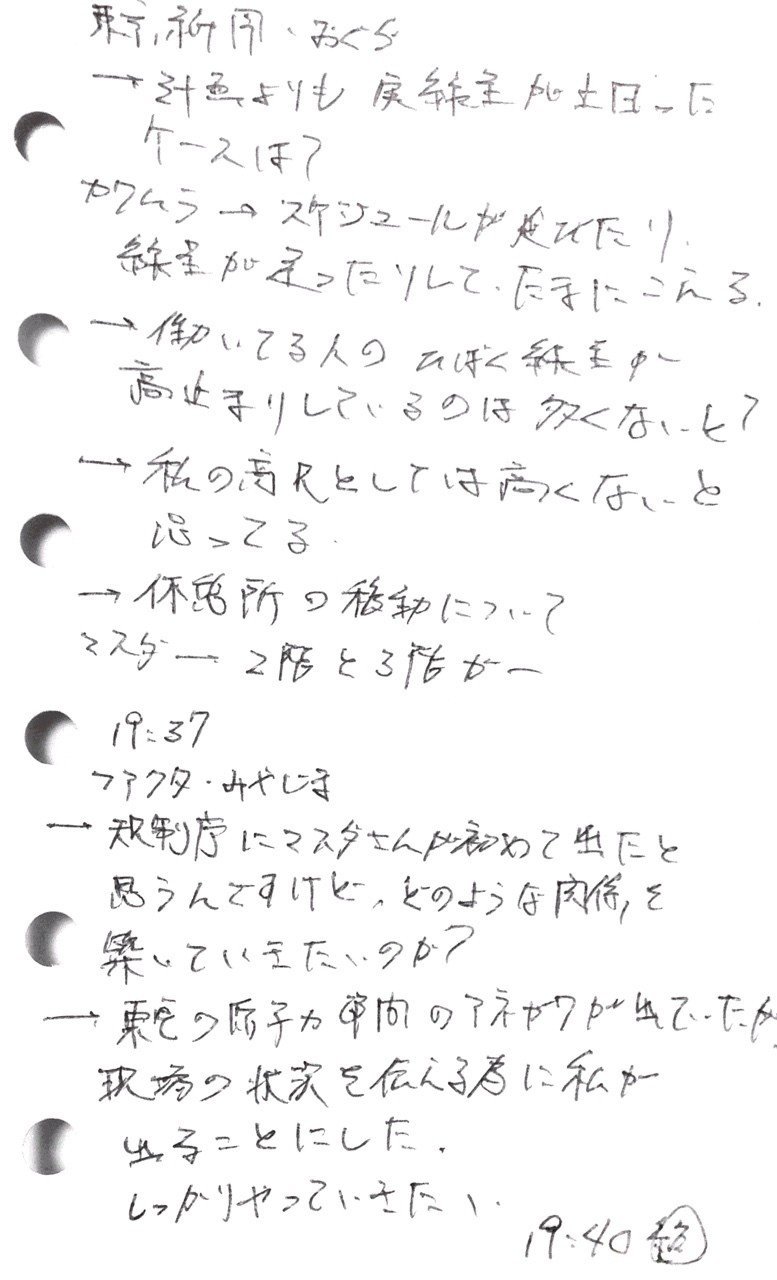 東京新聞・おぐら
→計画よりも実線量が上回った
ケースは?
カワムラ→スケジュールが延びたり、
線量が違ったりして、たまにこえる。
→働いてる人のひばく線量が
高止まりしているのは多くないと?
→私の高尺としては高くないと
思ってる。
→休憩所の移動について
マスダ→2階と3階が
19:37
ファクタ・みやじま
→規制庁にマスダさんが初めて出たと
思うんですけど、どのような関係を
築いていきたいのか?
→東電の原子力 のアネガワが出ていたが、
現場の状況を伝える為に私が
出ることにした。
しっかりやっていきたい、
19:40 終